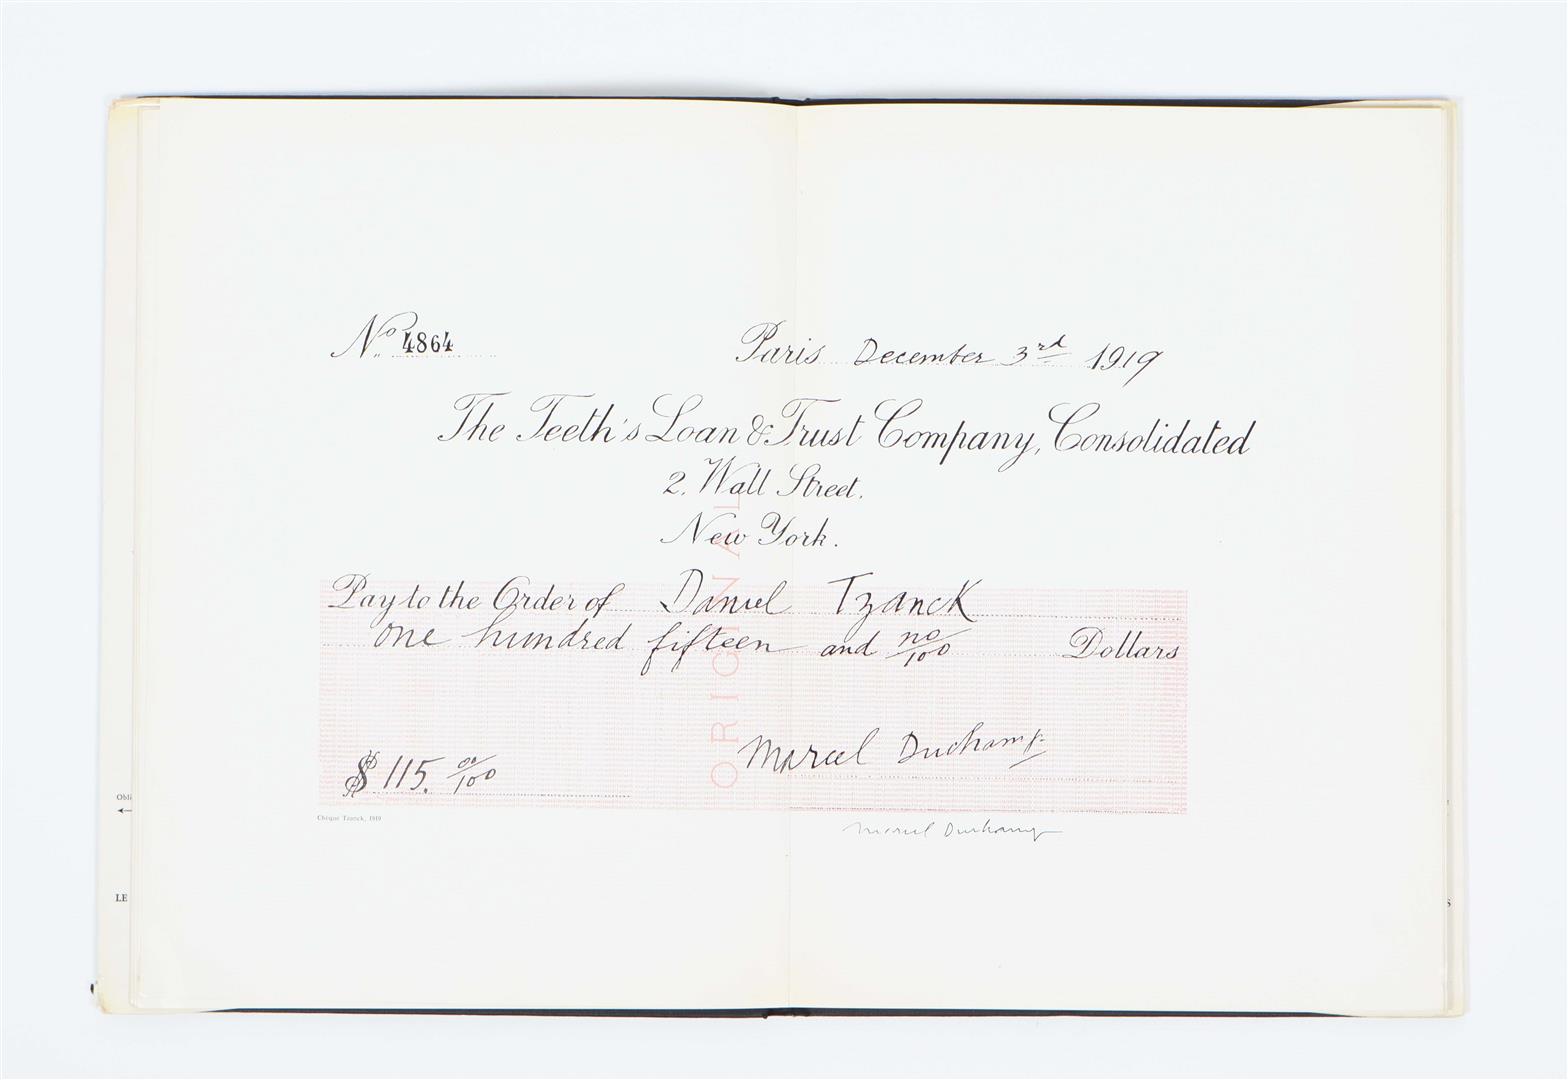 No. 4864
Paris December 3rd 1919
The Teeth's Loan & Trust Company, Consolidated
2. Wall Street.
New York.
ORIGINAL
Pay to the Order of Daniel Tzanck
one hundred fifteen and no/100 Dollars
Marcel Duchamp
$ 115. oo/100
Chèque Tzanck, 1919
Marcel Duchamp
LE